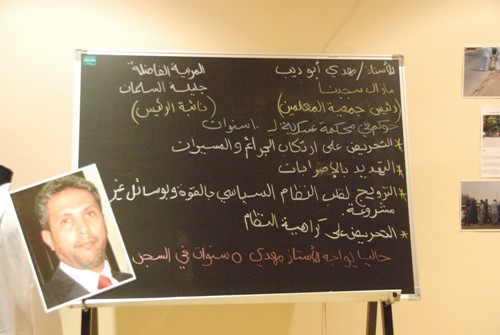 للأستاذ/مهدي أبو ديب
مازال سجينا
(رئيس جمعية المعلمين)
المربية الفاضلة
جليلة السلمان
(نائبة الرئيس)
حوكم في محكمة عسكرية لـ ١٠ سنوات
* التحريض على ارتكاب الجرائم والمسيرات
* التهديد بالإضرابات
* الترويج لقلب النظام السياسي بالقوة وبوسائل غير
مشروعة.
* التحريض على كراهية النظام
حاليا يواجه الأستاذ مهدي ٥ سنوات في السجن